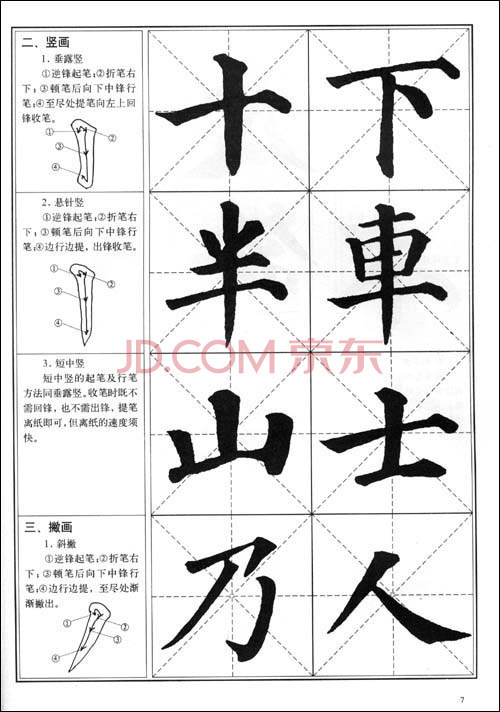 二、竖画
1. 垂露竖
①逆锋起笔;②折笔右
下;③顿笔后向下中锋行
笔;④至尽处提笔向左上回
锋收笔。
①
②
③
④
十
下
2. 悬针竖
①逆锋起笔;②折笔右
下;③顿笔后向下中锋行
笔;④边行边提,出锋收笔。
①
②
③
④
半
車
JD.COM 京东
3. 短中竖
短中竖的起笔及行笔
方法同垂露竖。收笔时既不
需回锋,也不需出锋,提笔
离纸即可,但离纸的速度须
快。
山
士
三、撇画
1. 斜撇
①逆锋起笔;②折笔右
下;③顿笔后向下中锋行
笔;④边行边提,至尽处渐
渐撇出。
①
②
③
④
乃
人
7